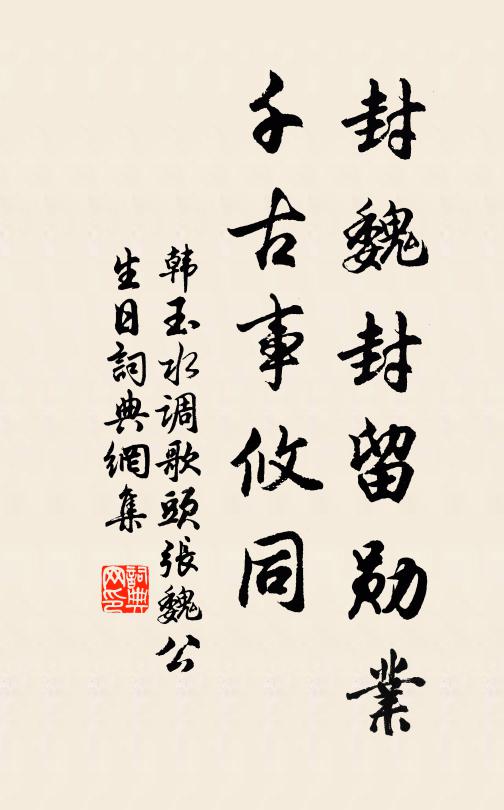 封魏封留勋業
千古事攸同
韩玉水调歌頭張魏公
生日詞典網集
詞典网印